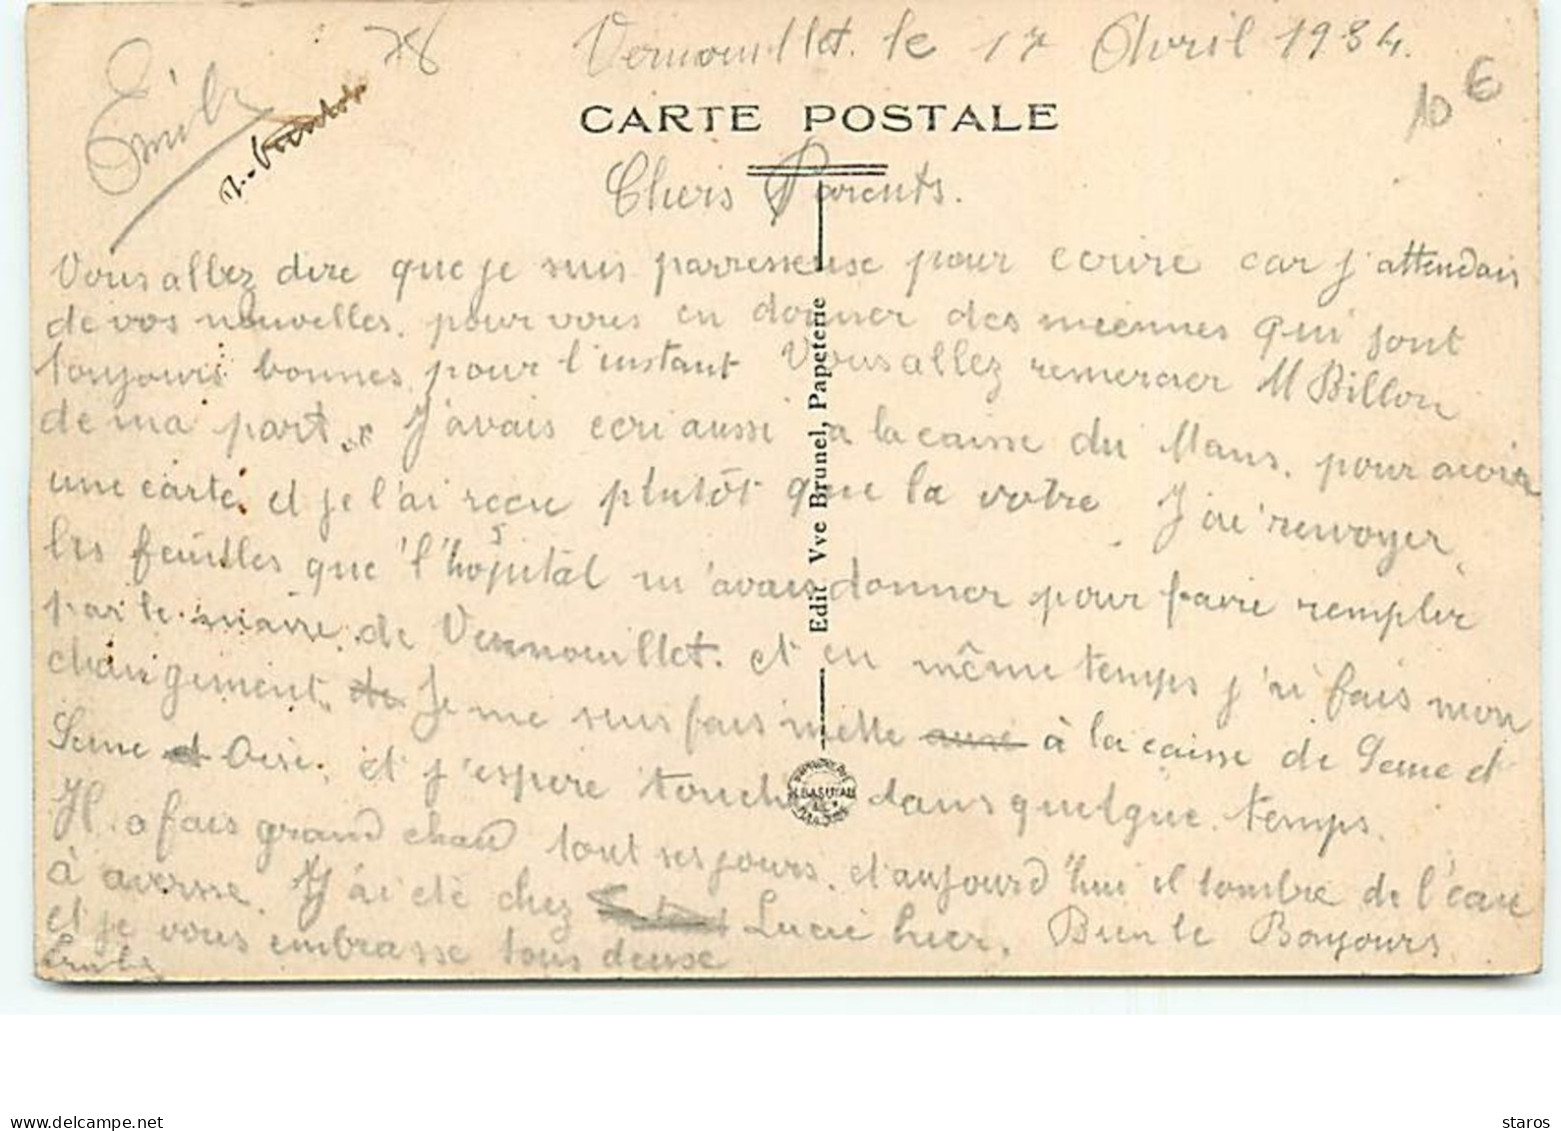 78
Vernouillet. le 17 Avril 1934.
10 €
CARTE POSTALE
Chers Parents.
Vous allez dire que je suis parresseuse pour ecrire car j'attendais
de vos nouvelles. pour vous en donner des miennes qui sont
toujours bonnes. pour l'instant Vous allez remercier M Billon
de ma part. J'avais ecri aussi a la caisse du Mans. pour avoir
une carte. et je l'ai recu plutôt que la votre J'ai renvoyer
les feuilles que l'hôpital m'avais donner pour faire remplir
par le maire. de Vernouillet. et en même temps j'ai fais mon
changement. de Je me suis fais mette à la caisse de Seine et
Seine et Oise. et j'espere touche dans quelque temps.
Il. a fais grand chaud tout ses jours. et aujourd'hui il tombre de l'eau
à averse. J'ai été chez Lucie hier. Bien le Bonjours
et je vous embrasse tous deuse
Emile
Edit Vve Brunel, Papeterie
www.delcampe.net
staros